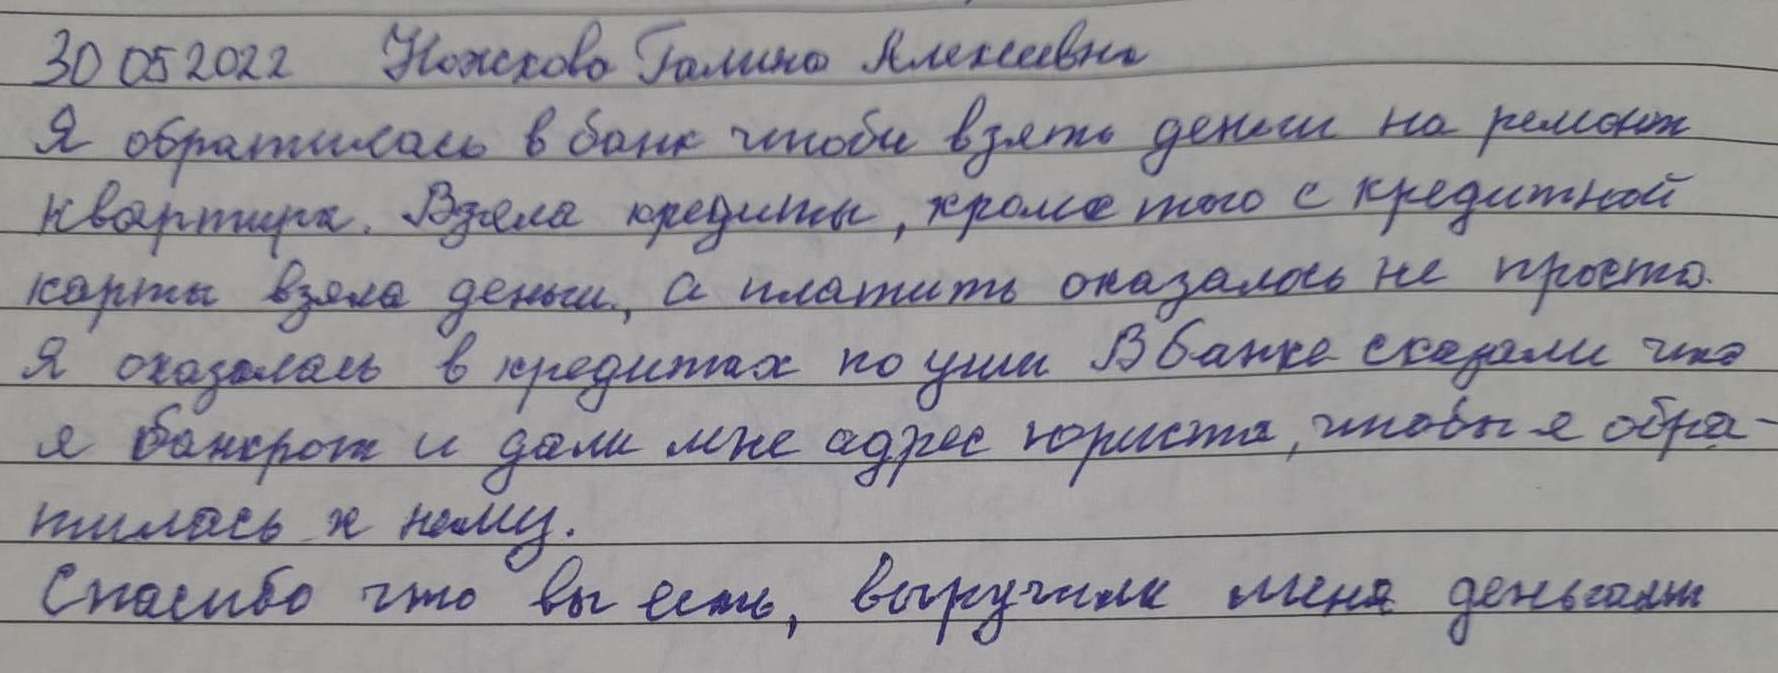 30 05 2022 Ножкова Галина Алексеевна
Я обратилась в банк чтобы взять деньги на ремонт
квартиры. Взяла кредиты, кроме того с кредитной
карты взяла деньги, а платить оказалось не просто.
Я оказалась в кредитах по уши В банке сказали что
я банкрот и дали мне адрес юриста, чтобы я обра-
тилась к нему.
Спасибо что вы есть, выручили меня деньгами